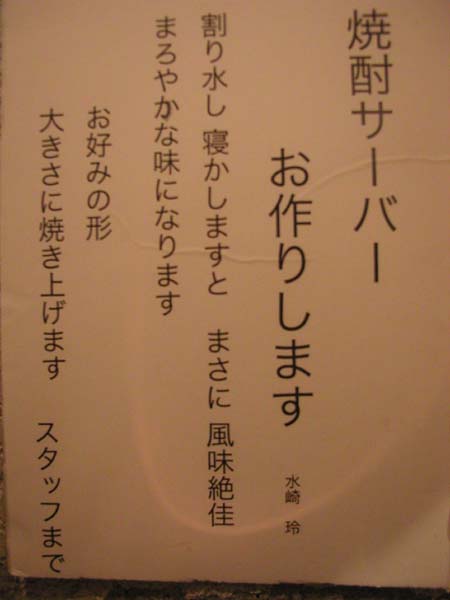 焼酎サーバー
お作りします
水崎 玲
割り水し 寝かしますと まさに 風味絶佳
まろやかな味になります
お好みの形
大きさに焼き上げます スタッフまで